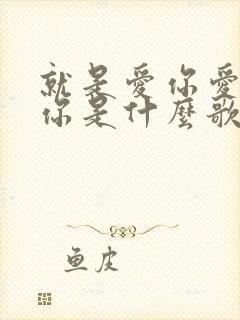 就是愛你愛
你是什麼歌
鱼皮